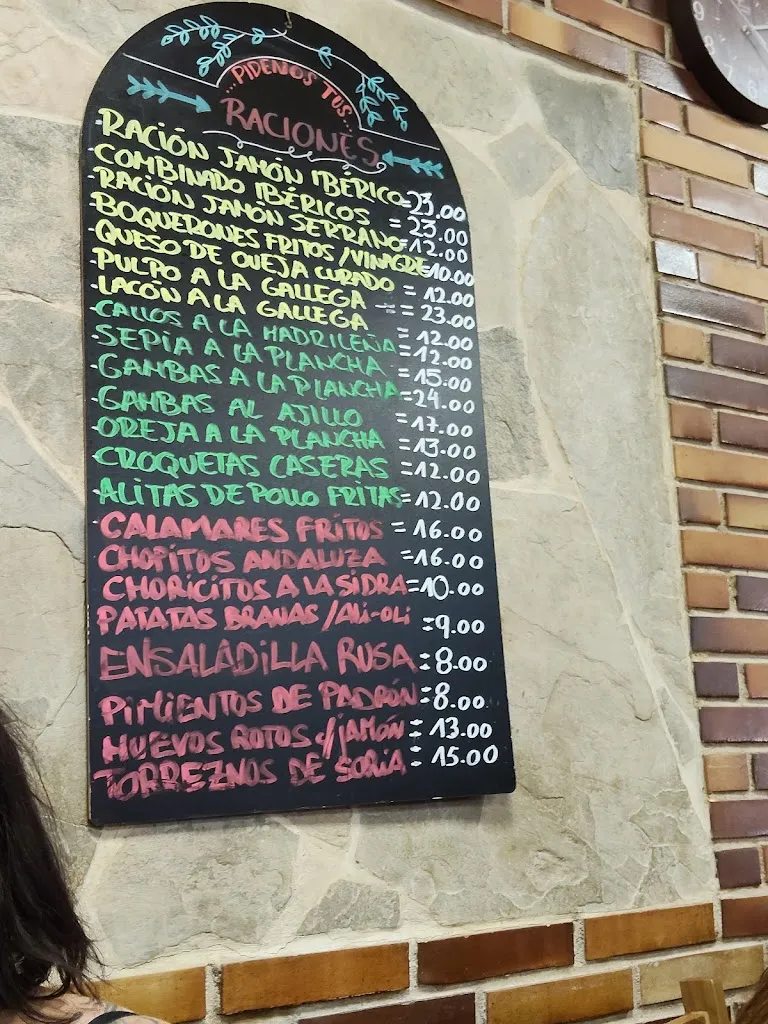 PIDENOS TUS
RACIONES
RACIÓN JAMÓN IBÉRICO = 23.00
COMBINADO IBÉRICOS = 23.00
RACIÓN JAMÓN SERRANO = 12.00
BOQUERONES FRITOS / VINAGRE = 10.00
QUESO DE OVEJA CURADO = 12.00
PULPO A LA GALLEGA = 23.00
LACÓN A LA GALLEGA = 12.00
CALLOS A LA MADRILEÑA = 12.00
SEPIA A LA PLANCHA = 15.00
GAMBAS A LA PLANCHA = 24.00
GAMBAS AL AJILLO = 17.00
OREJA A LA PLANCHA = 13.00
CROQUETAS CASERAS = 12.00
ALITAS DE POLLO FRITAS = 12.00
CALAMARES FRITOS = 16.00
CHOPITOS ANDALUZA = 16.00
CHORICITOS A LA SIDRA = 10.00
PATATAS BRAVAS / ALI-OLI = 9.00
ENSALADILLA RUSA = 8.00
PIMIENTOS DE PADRÓN = 8.00
HUEVOS ROTOS c/JAMÓN = 13.00
TORREZNOS DE SORIA = 15.00